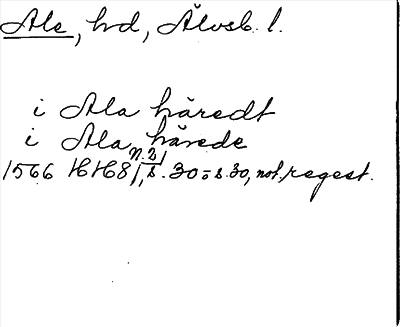 Ale, hd, Älvsb. l.
i Ala häredt
i Ala härede
n. 2
1566 HH 81, s. 30 = s. 30, not, regest.